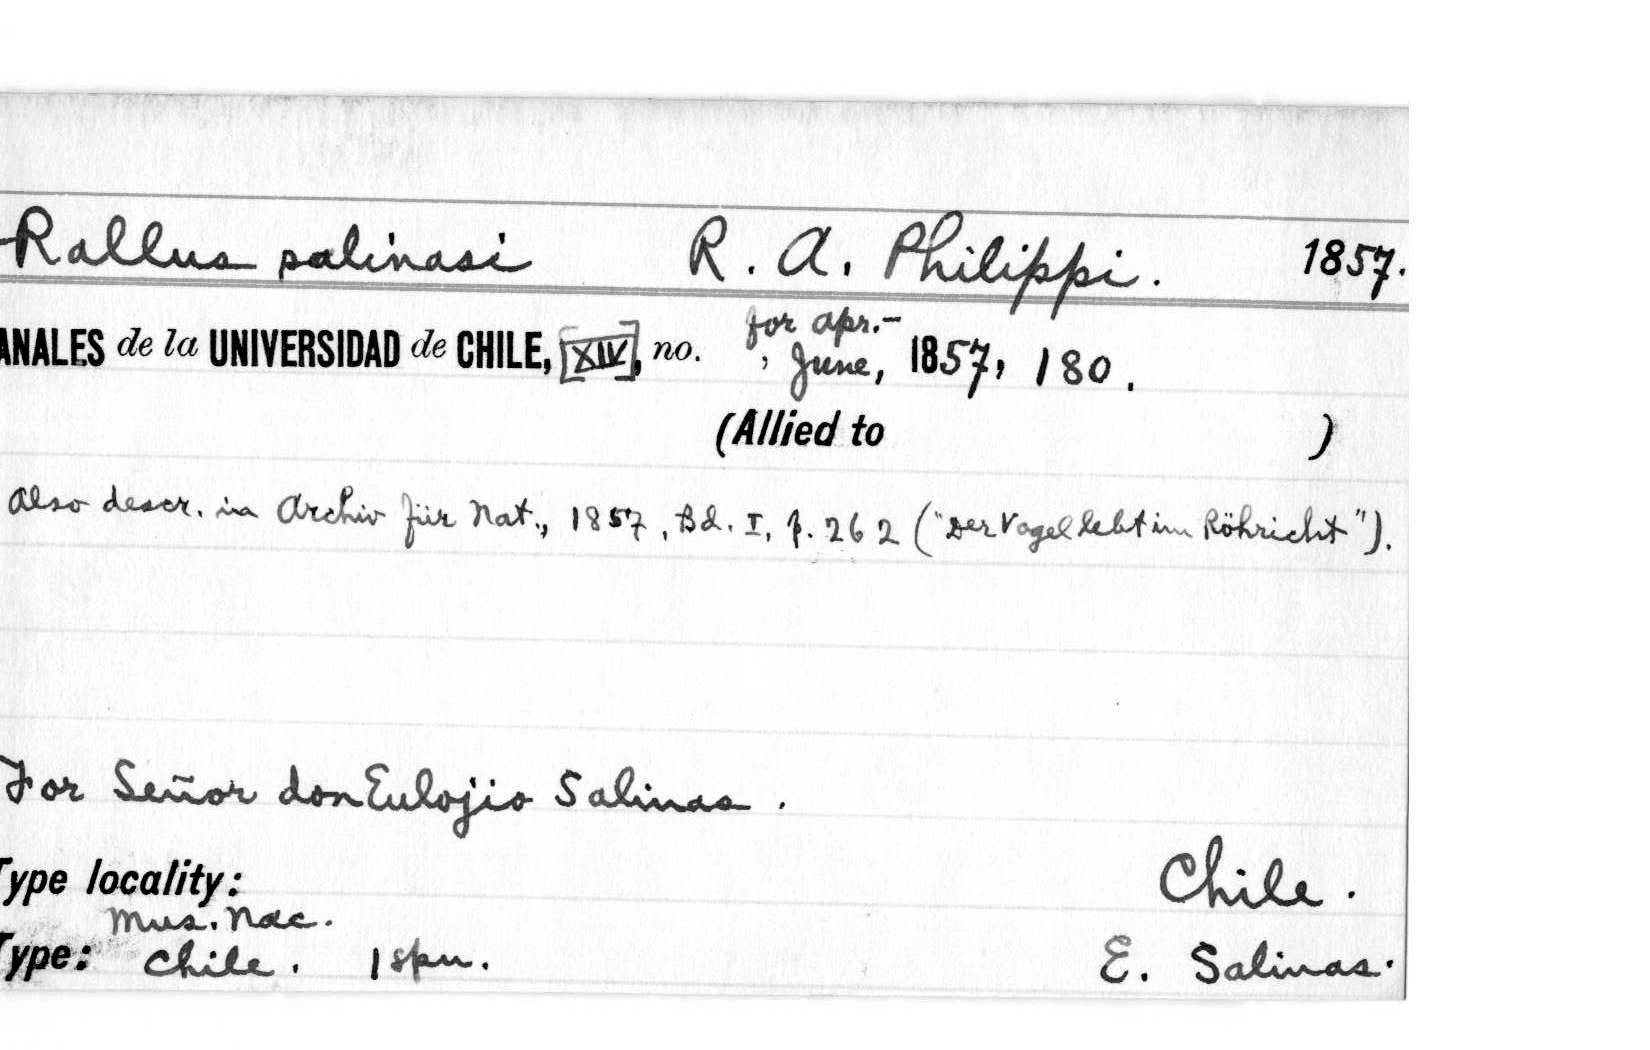 Rallus salinasi R. A. Philippi. 1857.
ANALES de la UNIVERSIDAD de CHILE, [XIV], no. , for Apr.-June, 1857, 180.
(Allied to )
Also descr. in Archiv für Nat., 1857, Bd. I, p. 262 ("Der Vogel lebt im Röhricht").
For Señor don Eulojio Salinas.
Type locality: Chile.
Mus. Nac.
Type: Chile. 1 spm. E. Salinas.